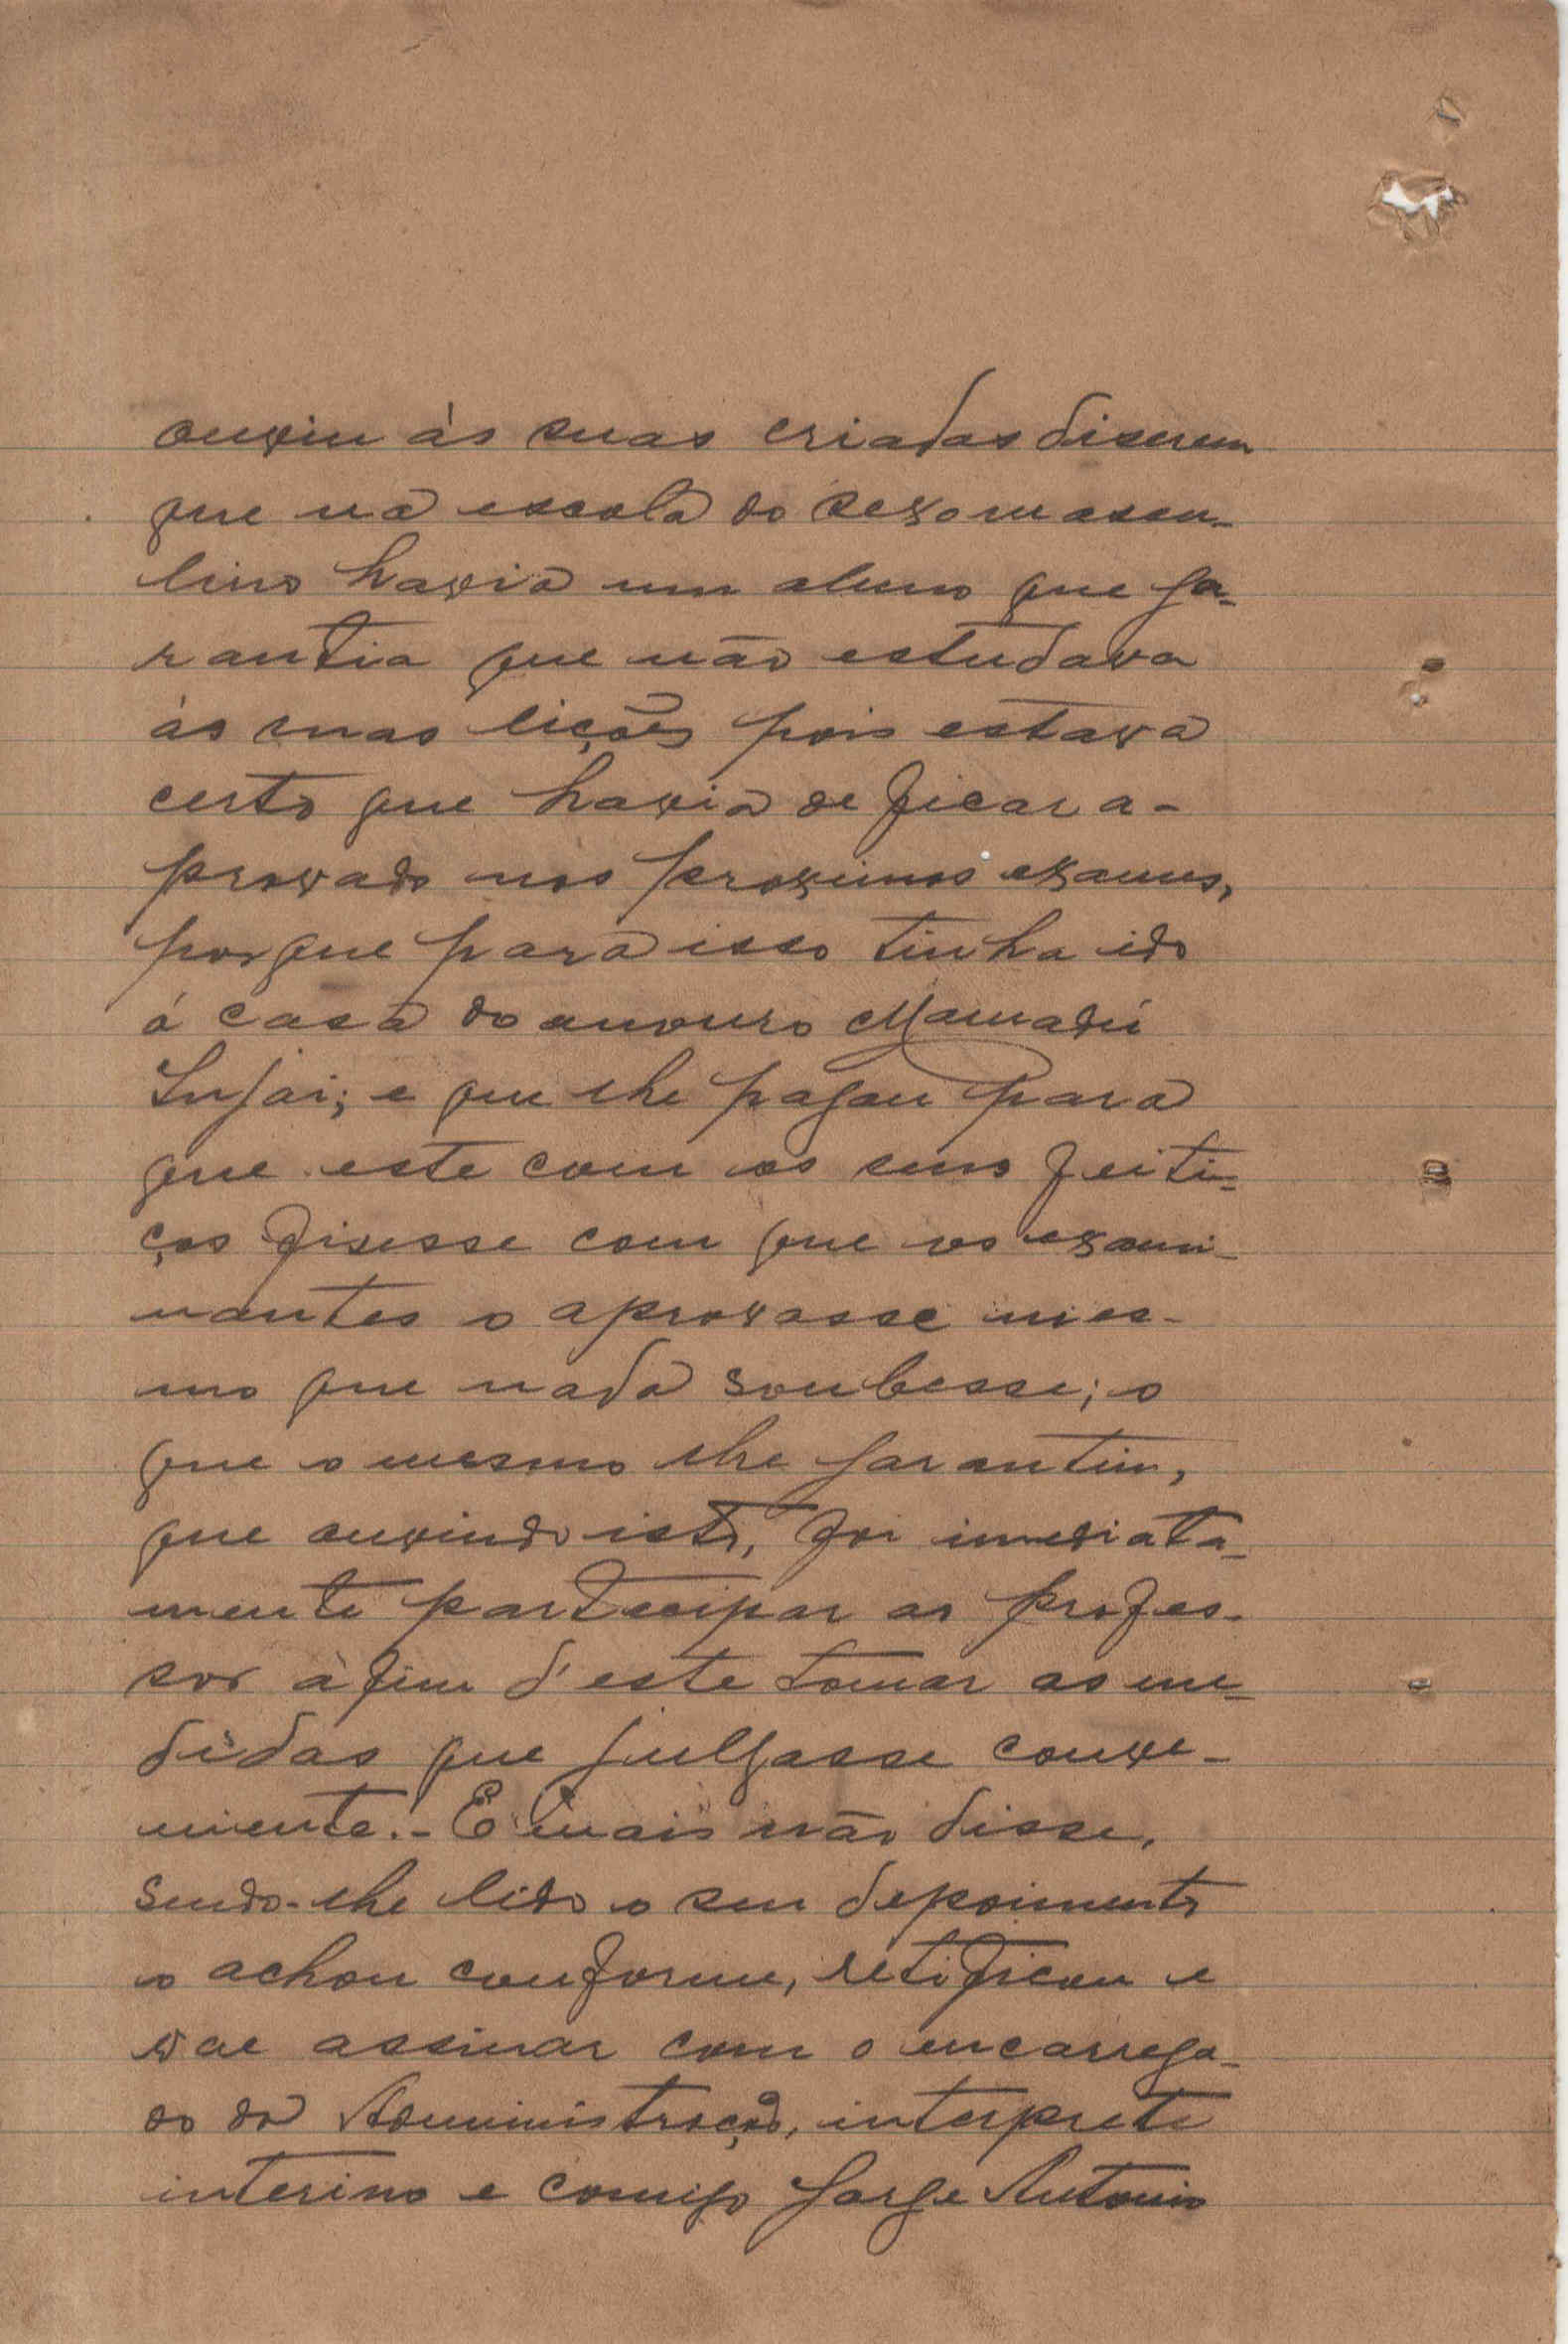 ouviu ás suas criadas diserem
que na escola do sexo mascu-
lino havia um aluno que ga-
rantia que não estudava
ás suas lições pois estava
certo que havia de ficar a-
provado nos proximos exames,
porque para isso tinha ido
á casa do mouro Mamadú
Injai; e que lhe pagou para
que este com os seus feiti-
ços fisesse com que os exami-
nantes o aprovasse mes-
mo que nada soubesse; o
que o mesmo lhe garantiu,
que ouvindo isto, foi imediata-
mente participar ao profes-
sor à fim d'este tomar as me-
didas que julgasse conve-
niente.- E mais não disse,
sendo-lhe lido o seu depoimento
o achou conforme, retificou e
vae assinar com o encarrega-
do da Administração, interprete
interino e comigo Jorge Antonio